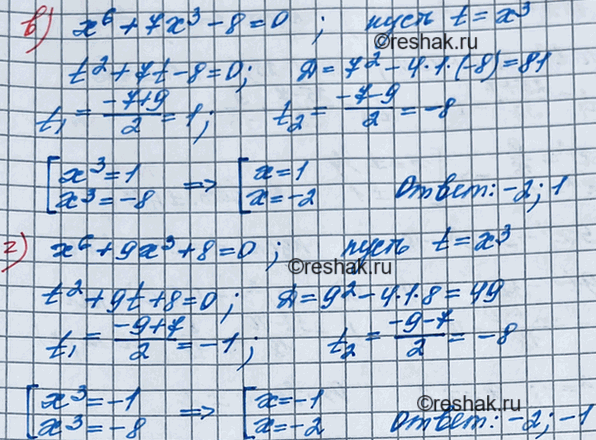 в) x⁶ + 7x³ - 8 = 0 ; пусть t = x³
©reshak.ru
t² + 7t - 8 = 0; Д = 7² - 4·1·(-8) = 81
t₁ = (-7+9)/2 = 1; t₂ = (-7-9)/2 = -8
[x³ = 1 => [x = 1
x³ = -8 x = -2 Ответ: -2; 1
г) x⁶ + 9x³ + 8 = 0 ; пусть t = x³
©reshak.ru
t² + 9t + 8 = 0; Д = 9² - 4·1·8 = 49
t₁ = (-9+7)/2 = -1; t₂ = (-9-7)/2 = -8
[x³ = -1 => [x = -1
x³ = -8 x = -2 Ответ: -2; -1
©reshak.ru